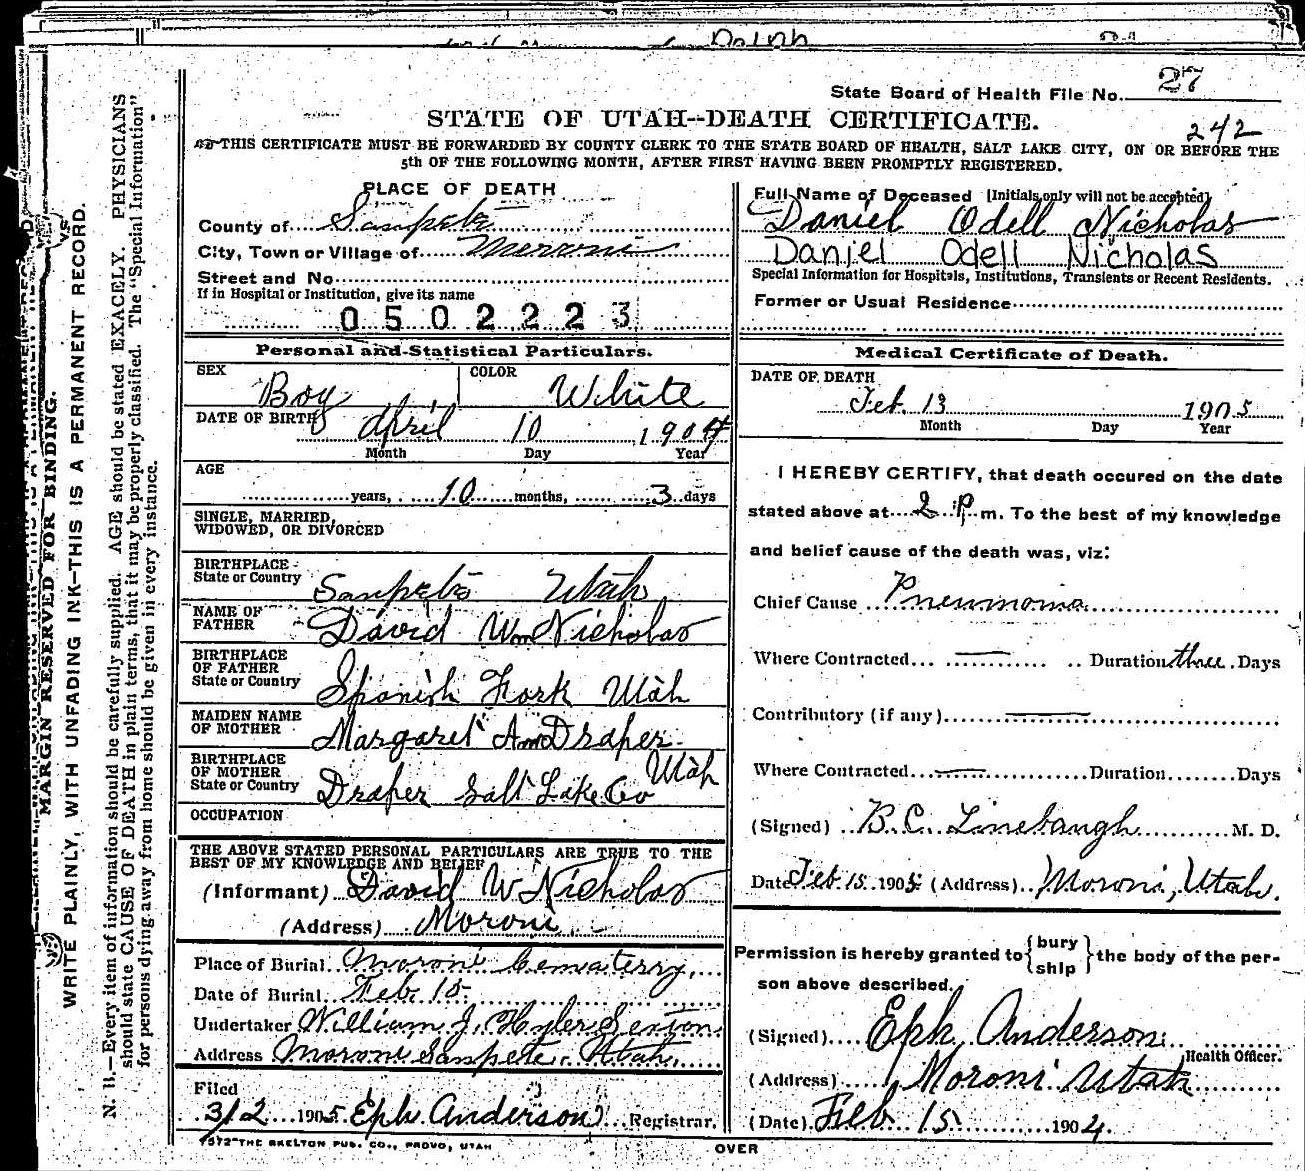 State Board of Health File No. 27
STATE OF UTAH--DEATH CERTIFICATE.
242
THIS CERTIFICATE MUST BE FORWARDED BY COUNTY CLERK TO THE STATE BOARD OF HEALTH, SALT LAKE CITY, ON OR BEFORE THE
5th OF THE FOLLOWING MONTH, AFTER FIRST HAVING BEEN PROMPTLY REGISTERED.
PLACE OF DEATH
County of Sanpete
City, Town or Village of Moroni
Street and No.
If in Hospital or Institution, give its name
0 5 0 2 2 2 3
Personal and Statistical Particulars.
SEX Boy COLOR White
DATE OF BIRTH April 10 1904
Month Day Year
AGE
years, 10 months, 3 days
SINGLE, MARRIED,
WIDOWED, OR DIVORCED
BIRTHPLACE
State or Country Sanpete Utah
NAME OF
FATHER David Wm Nicholas
BIRTHPLACE
OF FATHER
State or Country Spanish Fork Utah
MAIDEN NAME
OF MOTHER Margaret Ann Draper
BIRTHPLACE
OF MOTHER
State or Country Draper Salt Lake Co Utah
OCCUPATION
THE ABOVE STATED PERSONAL PARTICULARS ARE TRUE TO THE
BEST OF MY KNOWLEDGE AND BELIEF
(Informant) David W Nicholas
(Address) Moroni
Place of Burial Moroni Cematerry,
Date of Burial Feb. 15
Undertaker William J. Hyler Sexton
Address Moroni Sanpete. Utah.
Filed
3/2 1905 Eph Anderson Registrar.
THE SKELTON PUB. CO., PROVO, UTAH
OVER
Full Name of Deceased [Initials only will not be accepted]
Daniel Odell Nicholas
Daniel Odell Nicholas
Special Information for Hospitals, Institutions, Transients or Recent Residents.
Former or Usual Residence
Medical Certificate of Death.
DATE OF DEATH
Feb. 13 1905
Month Day Year
I HEREBY CERTIFY, that death occured on the date
stated above at 2 P. m. To the best of my knowledge
and belief cause of the death was, viz:
Chief Cause Pneumonia
Where Contracted Duration three Days
Contributory (if any)
Where Contracted Duration Days
(Signed) B. C. Linebaugh M. D.
Date Feb 15 1905 (Address) Moroni, Utah.
Permission is hereby granted to { bury
ship } the body of the per-
son above described.
(Signed) Eph Anderson
Health Officer.
(Address) Moroni Utah
(Date) Feb 15 1904.
MARGIN RESERVED FOR BINDING.
WRITE PLAINLY, WITH UNFADING INK—THIS IS A PERMANENT RECORD.
N. B.—Every item of information should be carefully supplied. AGE should be stated EXACELY. PHYSICIANS
should state CAUSE OF DEATH in plain terms, that it may be properly classified. The "Special Information"
for persons dying away from home should be given in every instance.